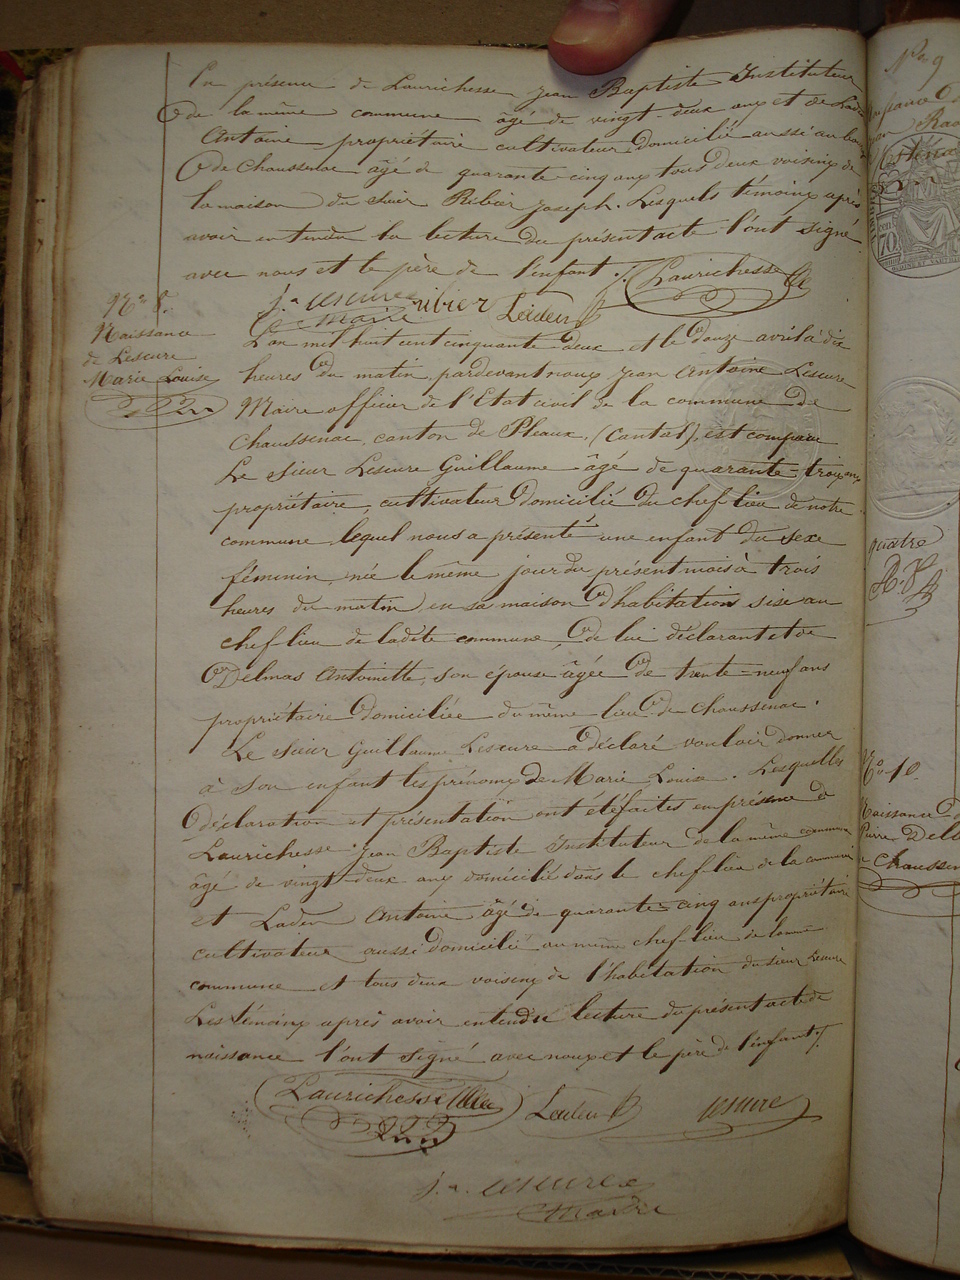 En présence de Laurichesse Jean Baptiste Instituteur
de la même commune âgé de vingt-deux ans et de Laden
Antoine propriétaire cultivateur domicilié aussi au bourg
de Chaussenac âgé de quarante-cinq ans tous deux voisins de
la maison du sieur Ribier Joseph. Lesquels témoins après
avoir entendu la lecture du présent acte l'ont signé
avec nous et le père de l'enfant.
Laurichesse
J.a Lescure Ribier Leiden
Maire
N° 8.
Naissance
de Lescure
Marie Louise
L'an mil huit cent cinquante deux et le douze avril à dix
heures du matin, pardevant nous Jean Antoine Lescure
Maire officier de l'Etat civil de la commune de
Chaussenac, canton de Pleaux, (Cantal), est comparu
Le sieur Lescure Guillaume âgé de quarante-trois ans
propriétaire, cultivateur domicilié du chef-lieu de notre
commune lequel nous a présenté une enfant du sexe
féminin, née le même jour du présent mois à trois
heures du matin, en sa maison d'habitation sise au
chef-lieu de ladite commune, de lui déclarant et de
Delmas Antoinette, son épouse âgée de trente-neuf ans
propriétaire domiciliée du même lieu de Chaussenac.
Le sieur Guillaume Lescure a déclaré vouloir donner
à son enfant les prénoms de Marie Louise. Lesquelles
déclaration et présentation ont été faites en présence de
Laurichesse Jean Baptiste Instituteur de la même commune
âgé de vingt-deux ans domicilié dans le chef-lieu de la commune
et Laden Antoine âgé de quarante-cinq ans propriétaire
cultivateur aussi domicilié au même chef-lieu de la même
commune et tous deux voisins de l'habitation du sieur Lescure
Les témoins après avoir entendu lecture du présent acte de
naissance l'ont signé avec nous et le père de l'enfant.
Laurichesse Leiden Lescure
J.a. Lescure
Maire
N° 9
quatre
N° 10.
Naissance d
Pierre Del
Chaussen